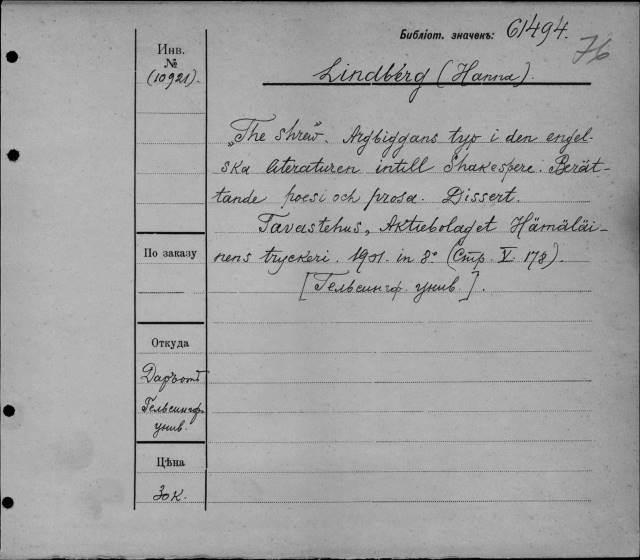 Библіот. значекъ: 61494.
76
Инв.
№
(10921).
Lindberg (Hanna).
„The shrew". Argbiggans typ i den engel-
ska literaturen intill Shakespere. Berät-
tande poesi och prosa. Dissert.
Tavastehus, Aktiebolaget Hämäläi-
nens tryckeri. 1901. in 8° (Стр. V. 178).
[Гельсингф. унив.].
По заказу
—
Откуда
Даръ отъ
Гельсингф.
унив.
Цѣна
30 к.